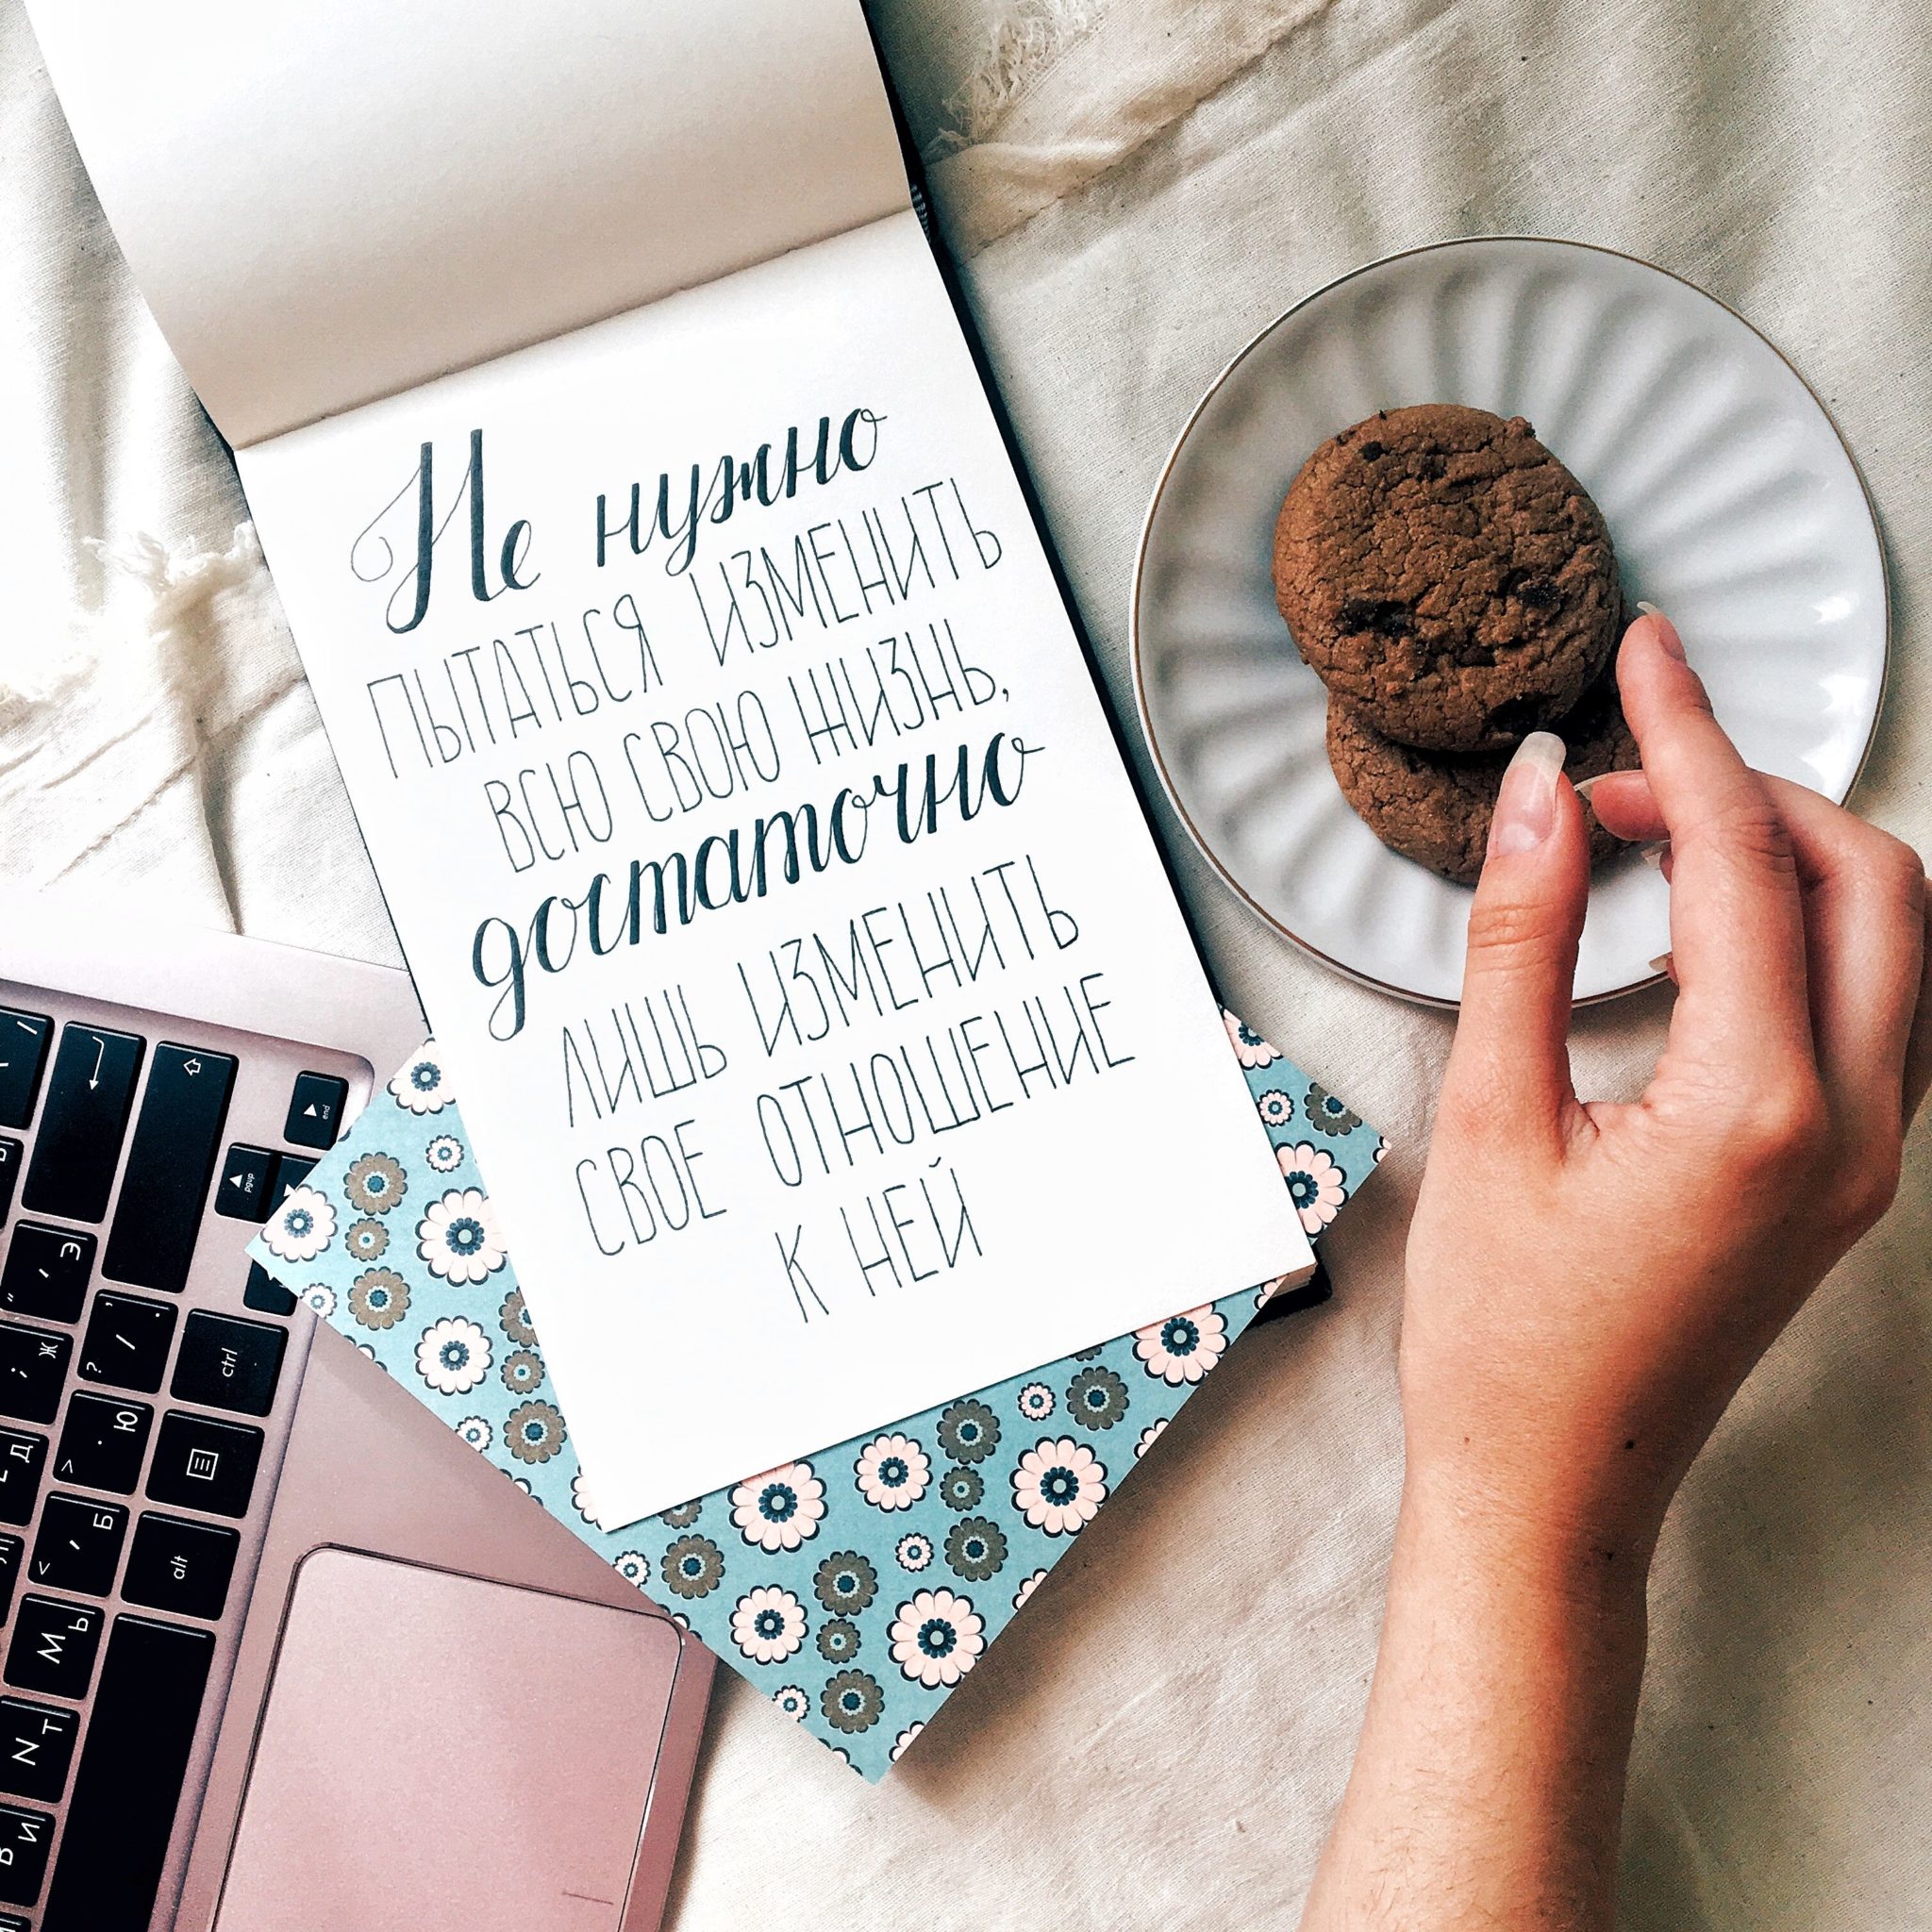 Не нужно
ПЫТАТЬСЯ ИЗМЕНИТЬ
ВСЮ СВОЮ ЖИЗНЬ,
достаточно
ЛИШЬ ИЗМЕНИТЬ
СВОЕ ОТНОШЕНИЕ
К НЕЙ
end
pgup
Э
Ж
ctrl
Ю
Д
Б
alt
М Ь
N Т
В И